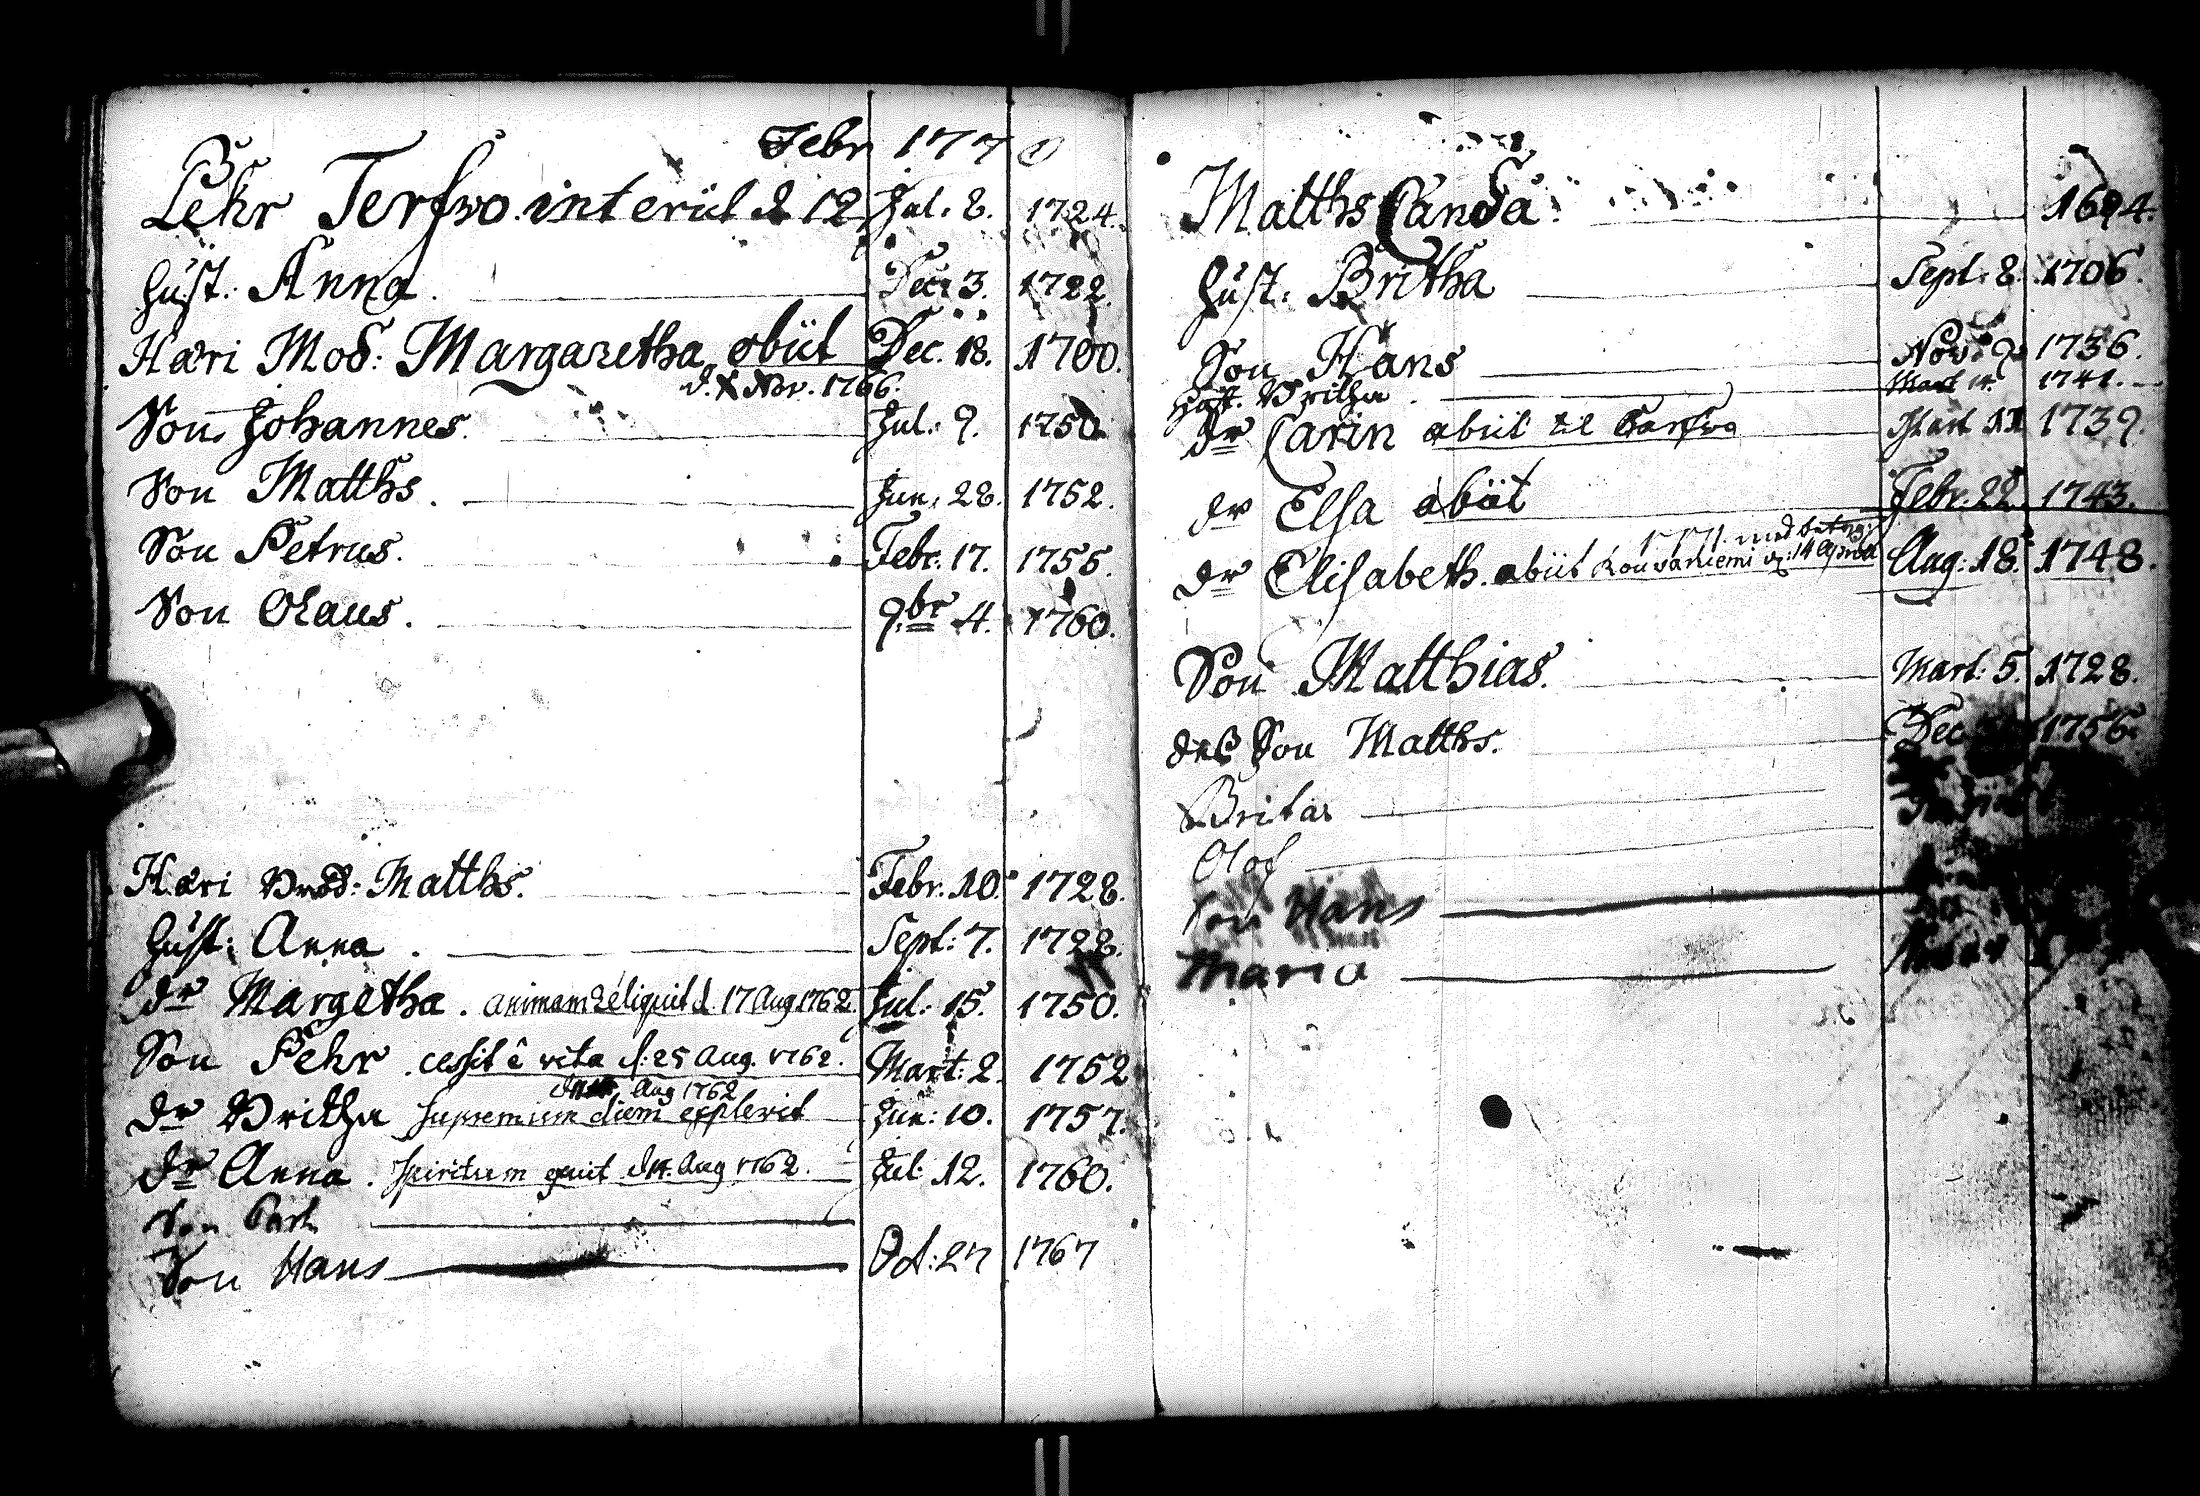 Febr 1770
Pehr Terfwo interiit d 12 Jul. 8. 1724.
Hust: Anna. Dec: 3. 1722.
Hæri Mod: Margaretha obiit Dec. 18. 1700.
d. Nov. 1766.
Son Johannes. Jul. 9. 1750.
Son Matths. Jun. 28. 1752.
Son Petrus. Febr. 17. 1755.
Son Olaus. 9br 4. 1760.
Hæri Brod: Matths. Febr. 10. 1728.
Hust: Anna. Sept: 7. 1728.
dr Margetha. animam reliquit d. 17 Aug 1762 Jul: 15. 1750.
Son Pehr. cessit ê vita d: 25 Aug. 1762. Mart: 2. 1752
Aug 1762
dr Britha supremum diem explevit Jun: 10. 1757.
dr Anna. spiritum d 14. Aug 1762. Jul. 12. 1760.
Son
Son Hans Oct: 27 1767
Matths Canda. 1694.
Hust. Britha Sept: 8. 1706.
Son Hans Nov: 9. 1736.
Hust. Britha. Mart 14. 1741.
dr Carin abiit til Mart 11 1739.
dr Elsa abiit Febr. 22. 1743.
1771. med betyg
dr Elisabeth. abiit Rouvaniemi 14 April Aug: 18. 1748.
Son Matthias. Mart: 5. 1728.
des Son Matths. Dec 1756.
Brita
Olof
Son Hans
Maria